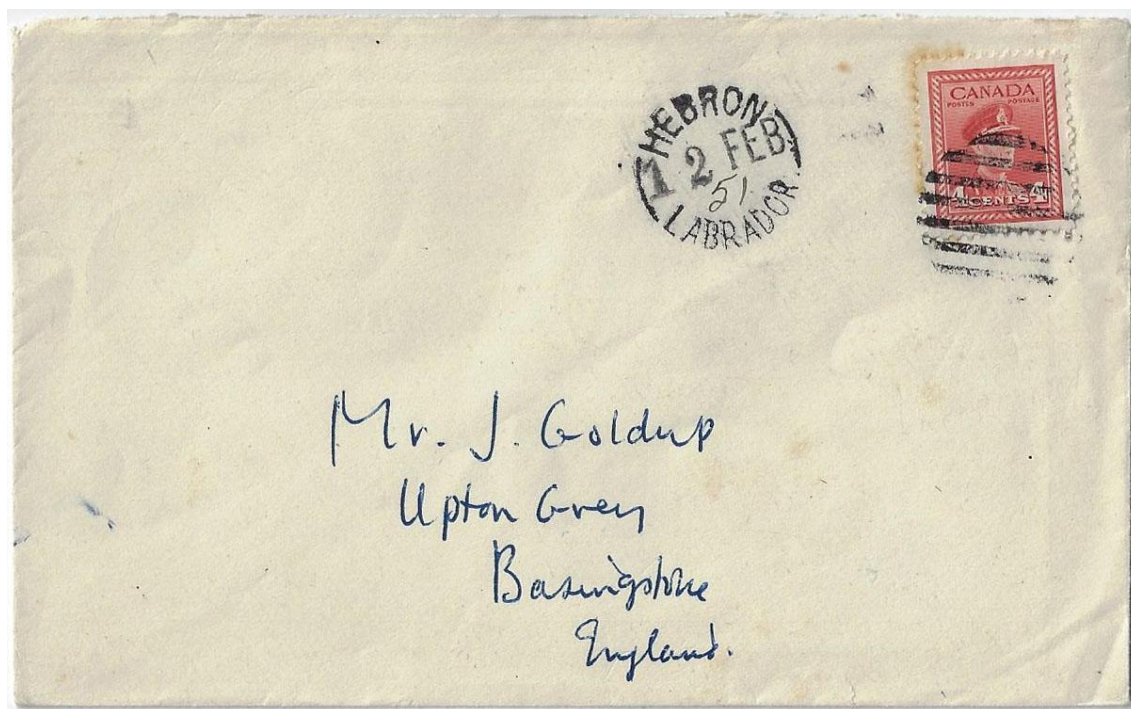 HEBRON
12 FEB
51
LABRADOR
CANADA
POSTES POSTAGE
4 CENTS 4
Mr. J. Goldup
Upton Grey
Basingstoke
England.